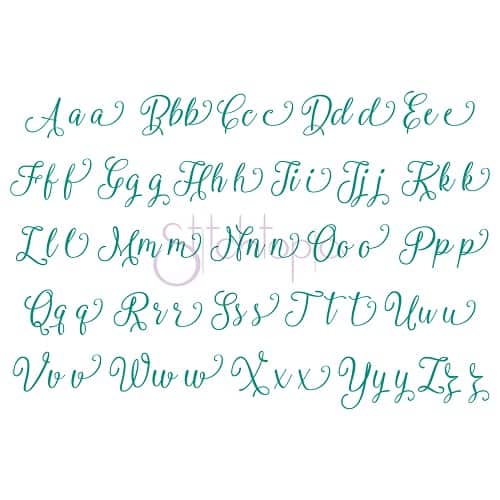 Aaa Bbb Ccc Ddd Eee
Fff Ggg Hhh Iii Jjj Kkk
Lll Mmm Nnn Ooo Ppp
Stitchtopia
Qqq Rrr Sss Ttt Uuu
Vvv Www Xxx Yyy Zzz